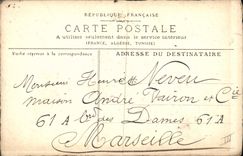 RÉPUBLIQUE FRANÇAISE
CARTE POSTALE
A utiliser seulement dans le service intérieur
(FRANCE, ALGÉRIE, TUNISIE)
Côté réservé à la correspondance
ADRESSE DU DESTINATAIRE
Monsieur Henri Neveu
maison André Vairon et Cie
61 A Bould des Dames 61 A
Marseille